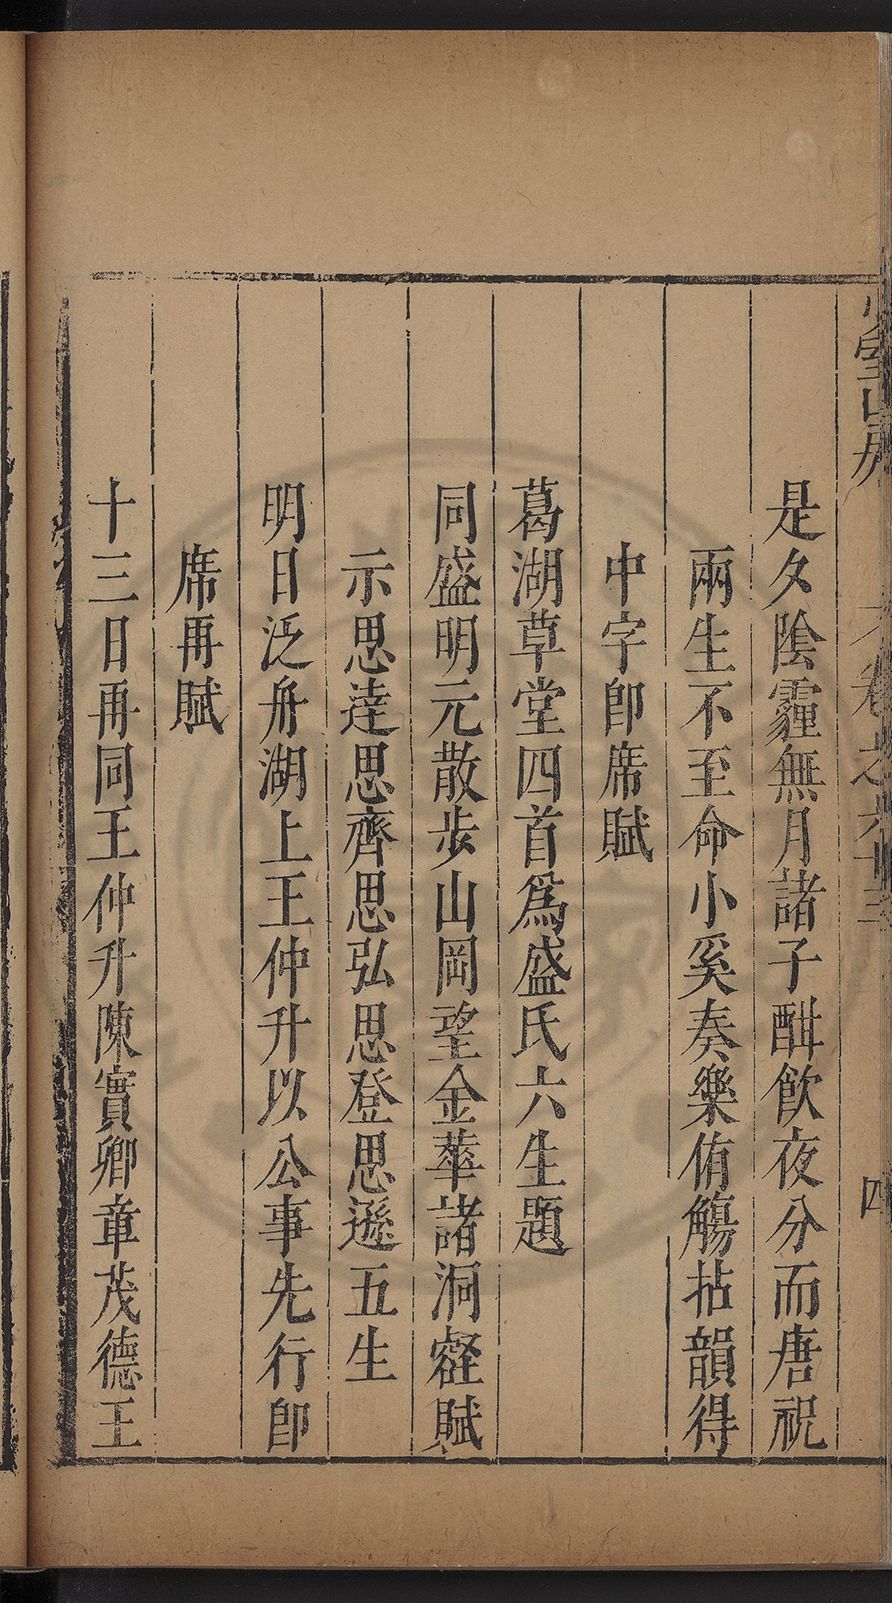 是夕陰霾無月諸子酣飲夜分而唐祝
兩生不至命小奚奏樂侑觴拈韻得
中字卽席賦
葛湖草堂四首爲盛氏六生題
同盛明元散步山岡望金華諸洞壑賦
示思逵思齊思弘思登思遜五生
明日泛舟湖上王仲升以公事先行卽
席再賦
十三日再同王仲升陳實卿章茂德王